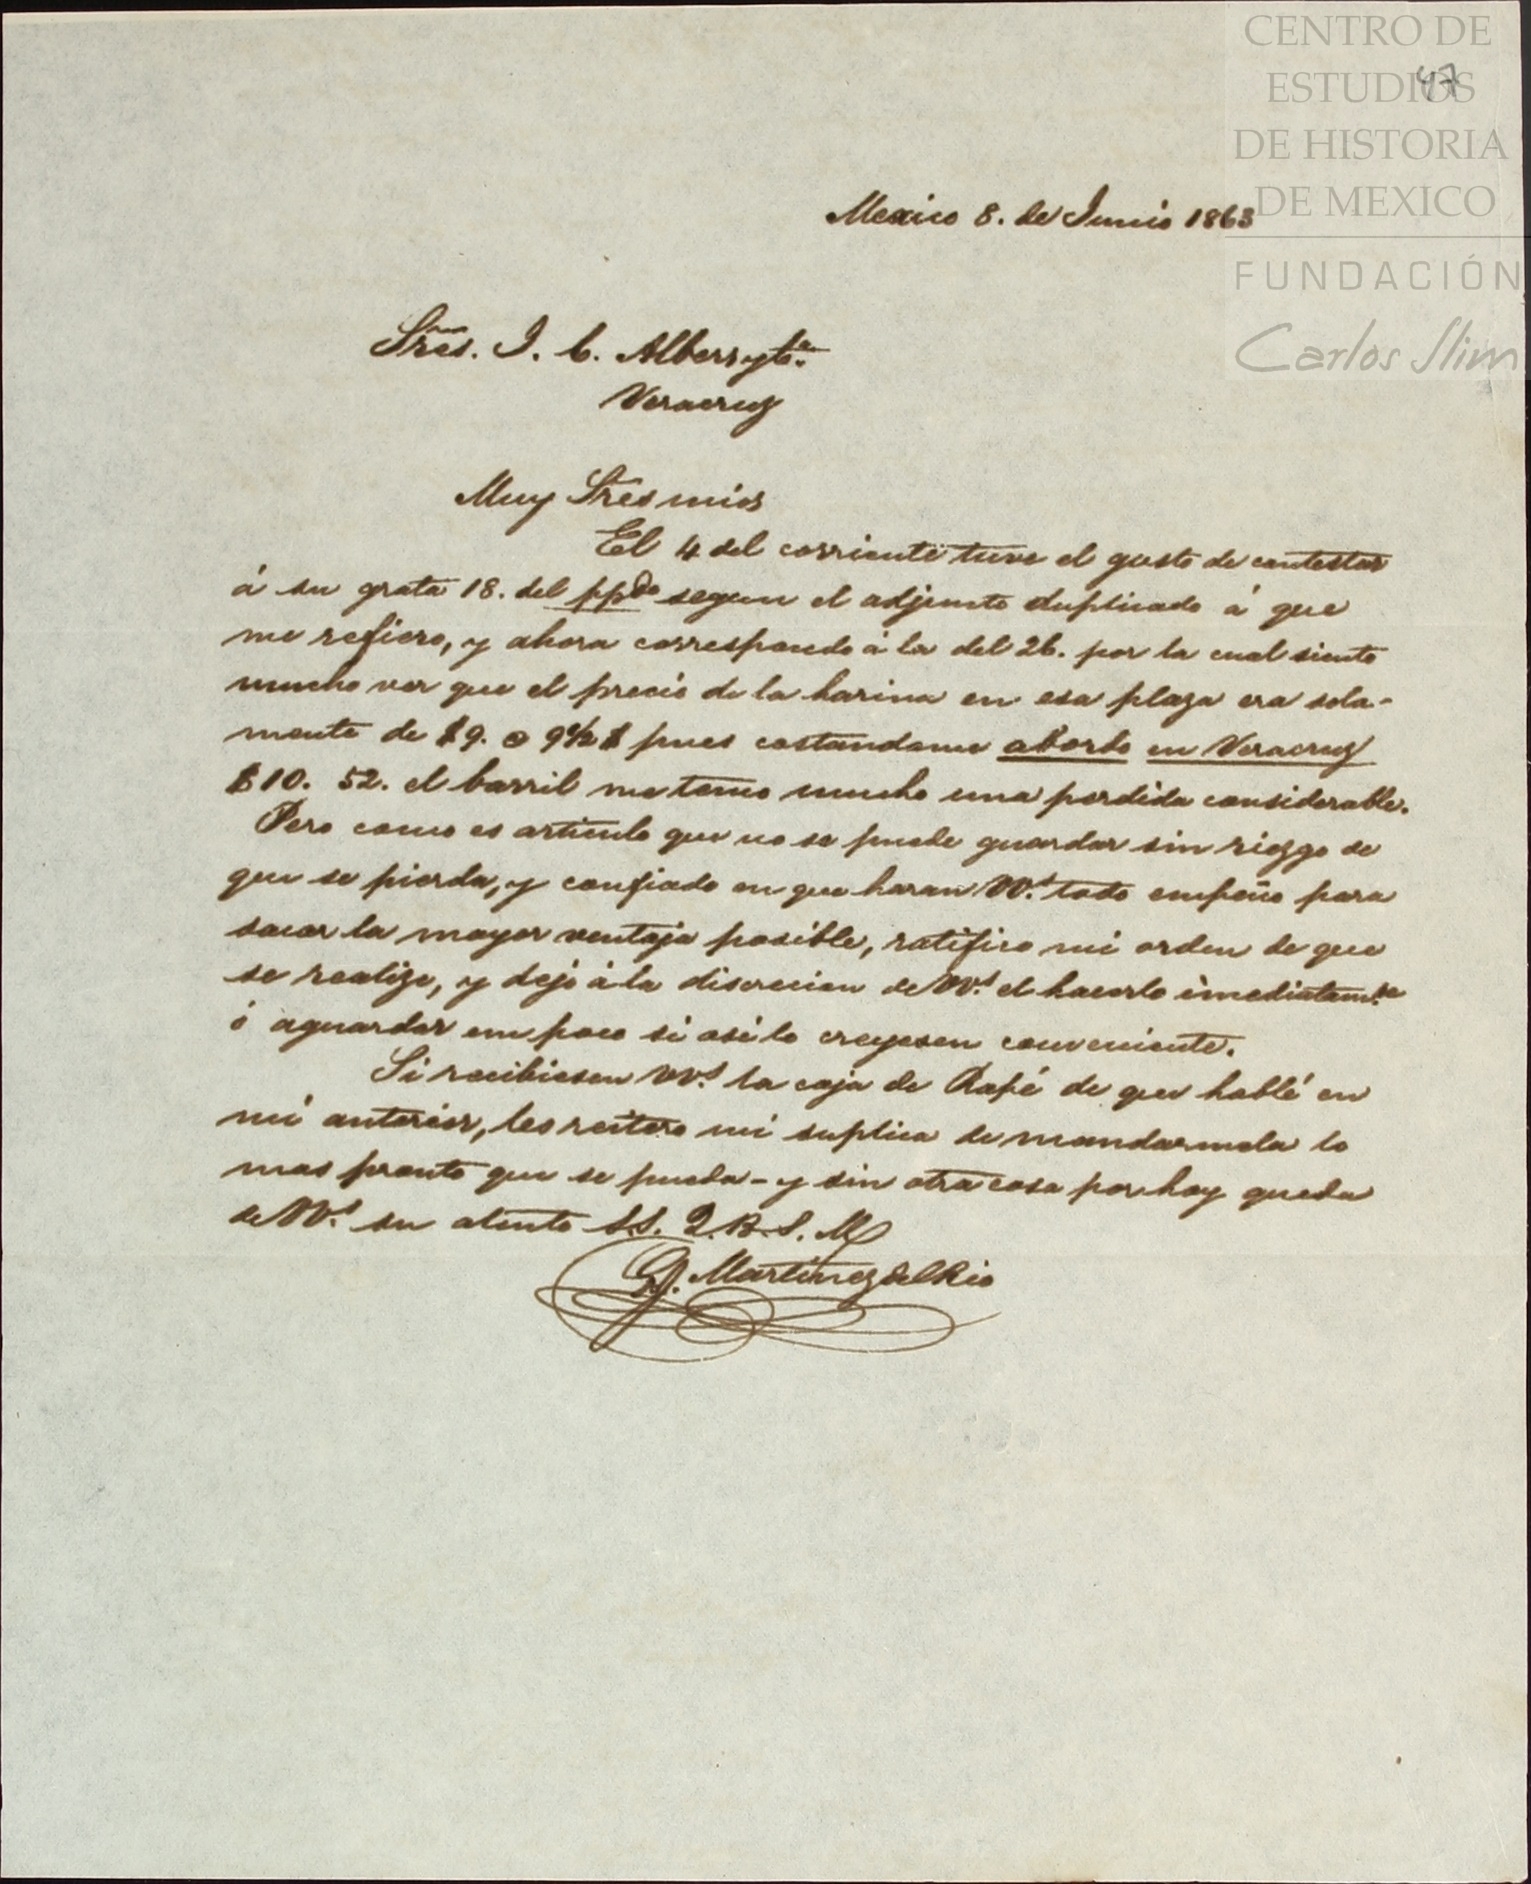 CENTRO DE
ESTUDIOS
DE HISTORIA
DE MEXICO
FUNDACIÓN
Carlos Slim
47
Mexico 8. de Junio 1863
Sres. J. C. Albers y Ca.
Veracruz
Muy Sres mios
El 4 del corriente tuve el gusto de contestar
á su grata 18. del ppdo segun el adjunto duplicado á que
me refiero, y ahora correspondo á la del 26. por la cual siento
mucho ver que el precio de la harina en esa plaza era sola-
mente de $9. @ 9½ $ pues costandome abordo en Veracruz
$10. 52. el barril me temo mucho una perdida considerable.
Pero como es articulo que no se puede guardar sin riezgo de
que se pierda, y confiado en que haran VV.s todo empeño para
sacar la mayor ventaja posible, ratifico mi orden de que
se realize, y dejo á la discrecion de VV.s el hacerlo imediatamte
ó aguardar un poco si asi lo creyesen conveniente.
Si recibiesen VV.s la caja de Rapé de que hablé en
mi anterior, les reitero mi suplica de mandarmela lo
mas pronto que se pueda - y sin otra cosa por hoy queda
de VV.s su atento S.S. Q.B.S.M
Martinez del Rio